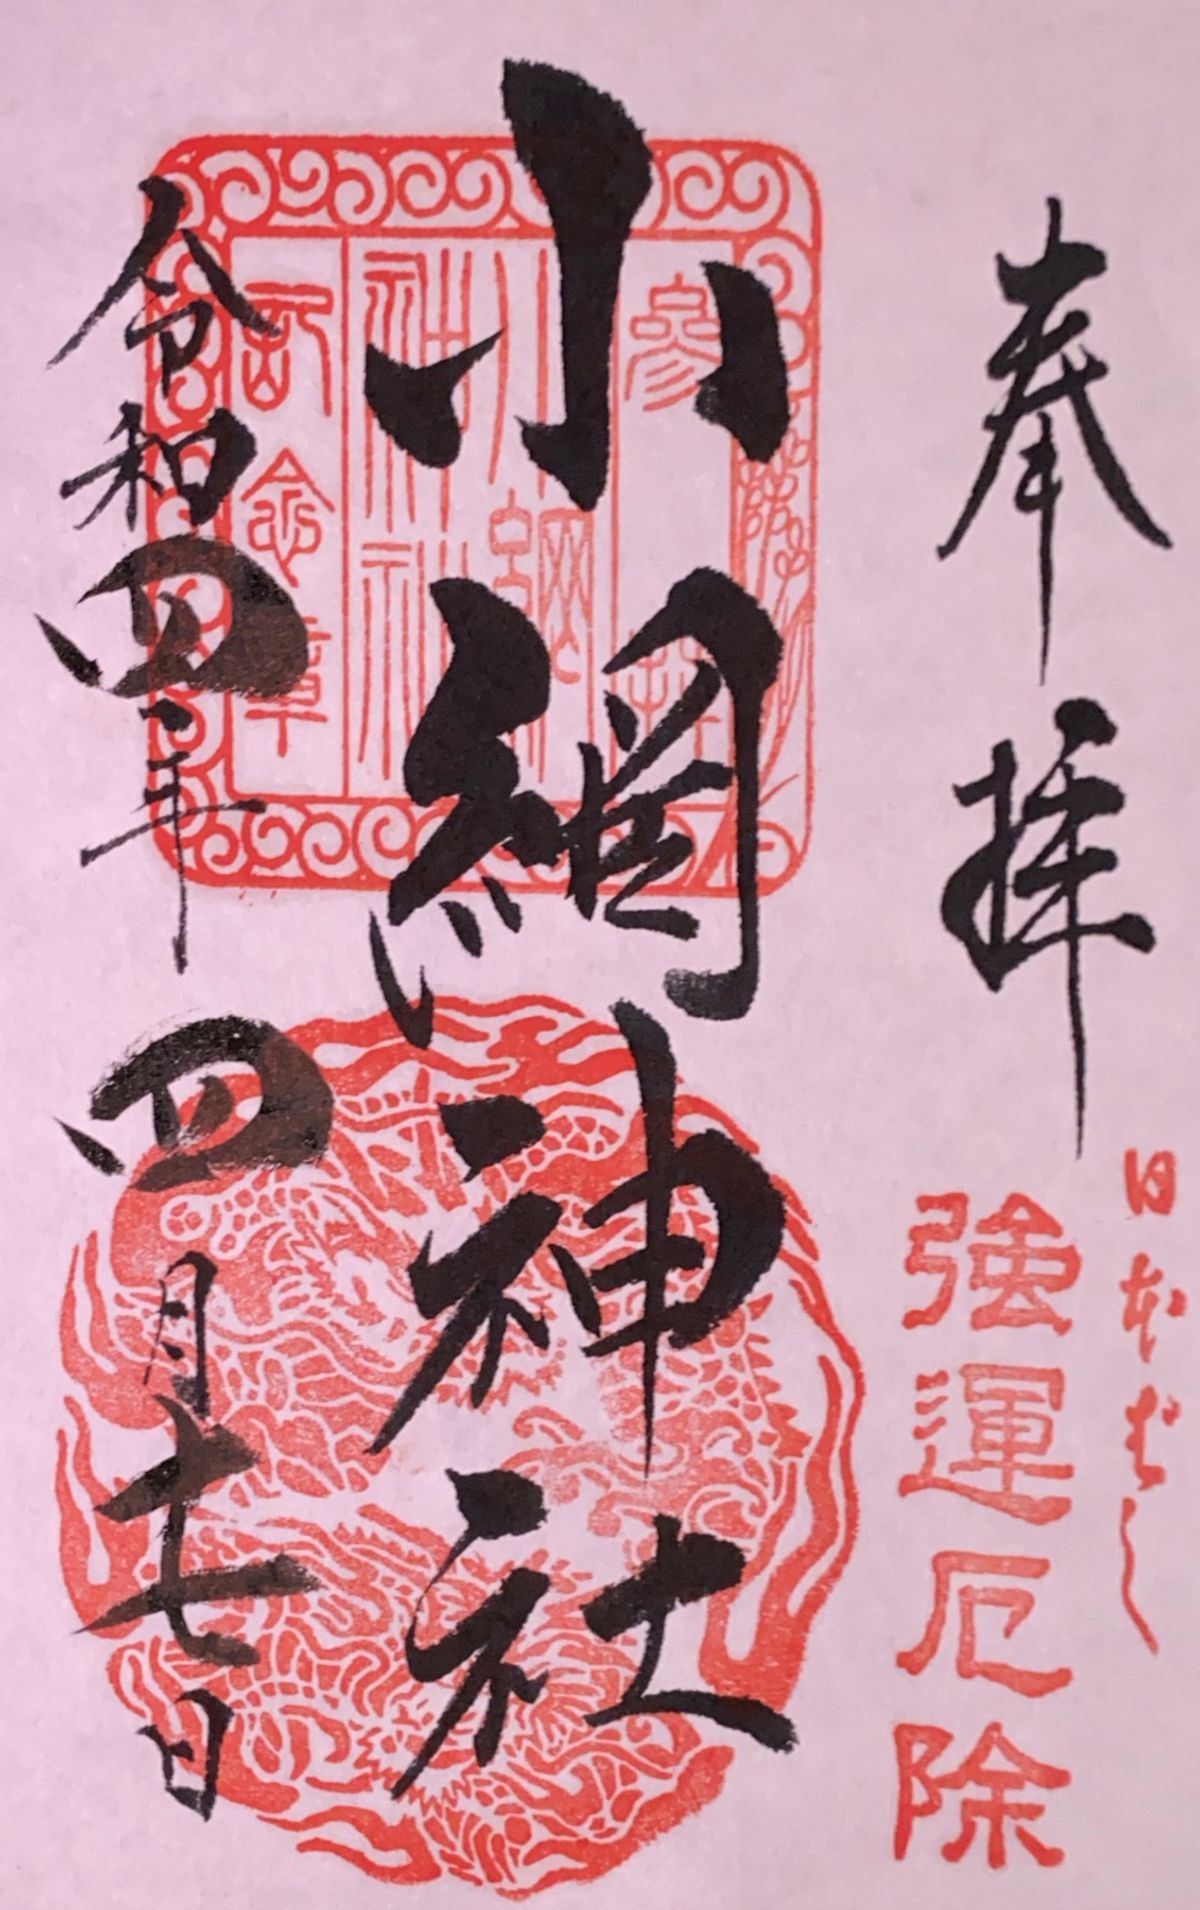 奉拝
日本ばし
強運厄除
小網神社
参拝
小網
神社
云念章
令和四年四月十七日